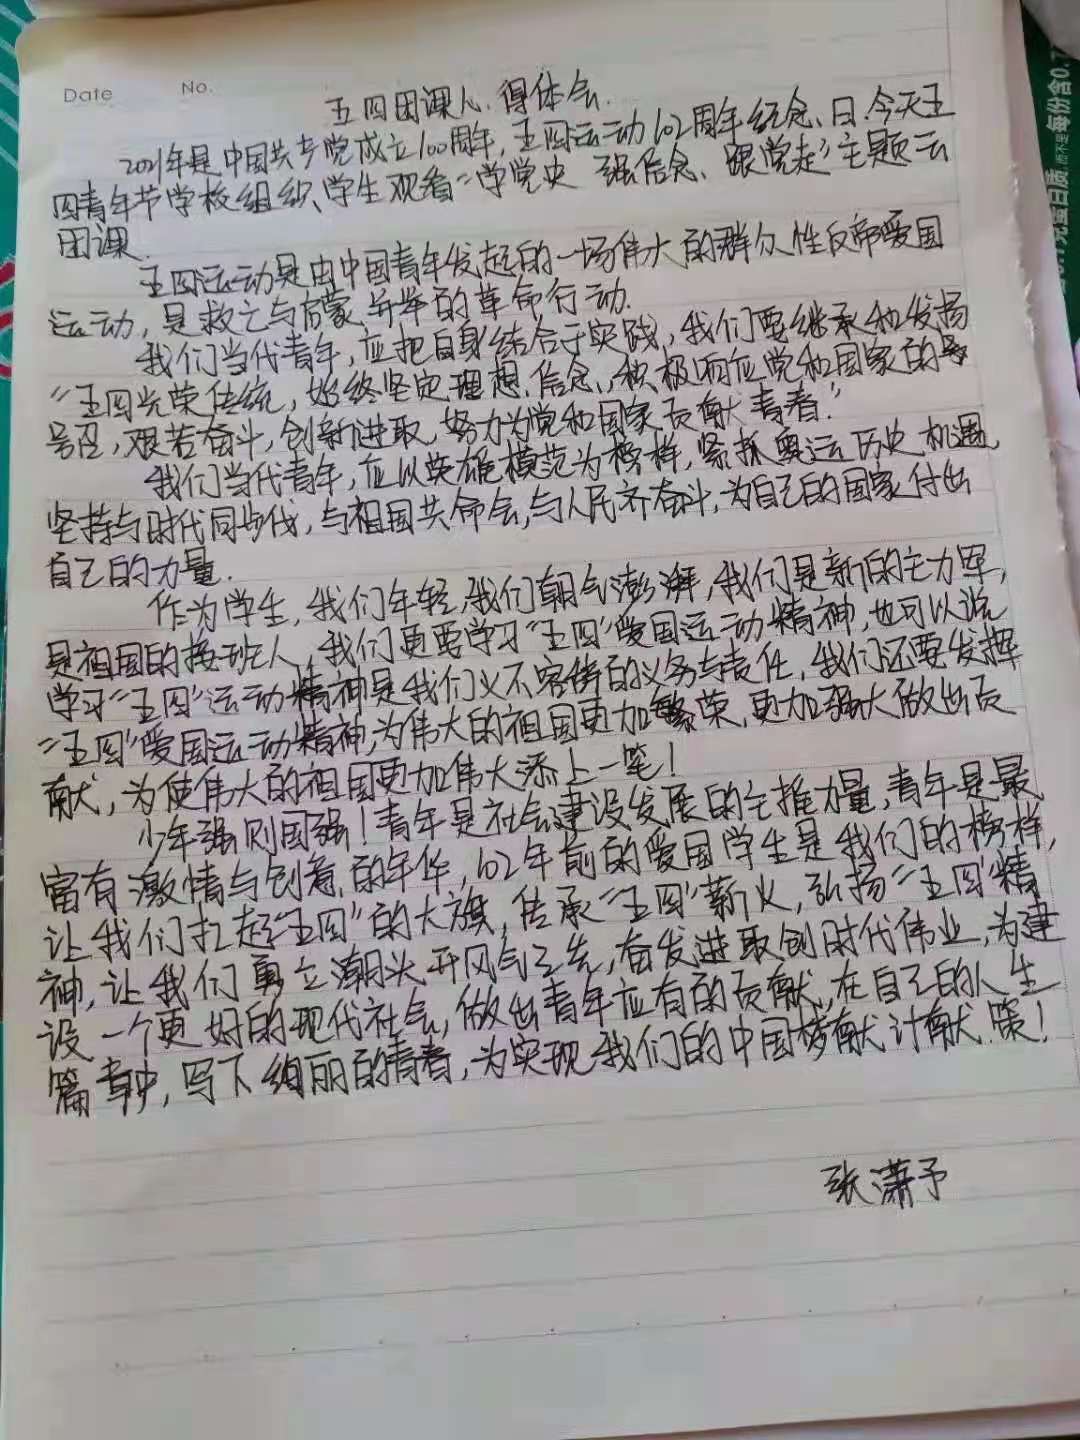 Date No.
五四团课心得体会.
2021年是中国共产党成立100周年,五四运动102周年纪念日.今天五
四青年节学校组织学生观看“学党史 强信念、跟党走”主题云
团课.
五四运动是由中国青年发起的一场伟大的群众性反帝爱国
运动,是救亡与启蒙并举的革命行动.
我们当代青年,应把自身结合于实践,我们要继承和发扬
“五四光荣传统,始终坚定理想、信念、积极响应党和国家的
号召,艰苦奋斗,创新进取,努力为党和国家贡献青春.”
我们当代青年,应以英雄模范为榜样,紧抓奥运历史机遇
坚持与时代同步伐,与祖国共命会,与人民齐奋斗,为自己的国家付出
自己的力量.
作为学生,我们年轻,我们朝气澎湃,我们是新的主力军,
是祖国的接班人,我们更要学习“五四”爱国运动精神,也可以说
学习“五四”运动精神是我们义不容辞的义务与责任,我们还要发挥
“五四”爱国运动精神,为伟大的祖国更加繁荣,更加强大做出贡
献,为使伟大的祖国更加伟大添上一笔!
少年强则国强!青年是社会建设发展的主推力量,青年是最
富有激情与创意的年华,102年前的爱国学生是我们的榜样,
让我们扛起“五四”的大旗,传承“五四”薪火,弘扬“五四”精
神,让我们勇立潮头开风气之先,奋发进取创时代伟业,为建
设一个更好的现代社会,做出青年应有的贡献,在自己的人生
篇章中,写下绚丽的青春,为实现我们的中国梦献计献策!
张潇予
每份含0.7
而不是